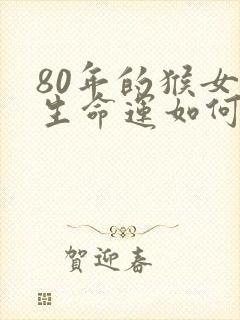 80年的猴女
生命运如何
賀迎春